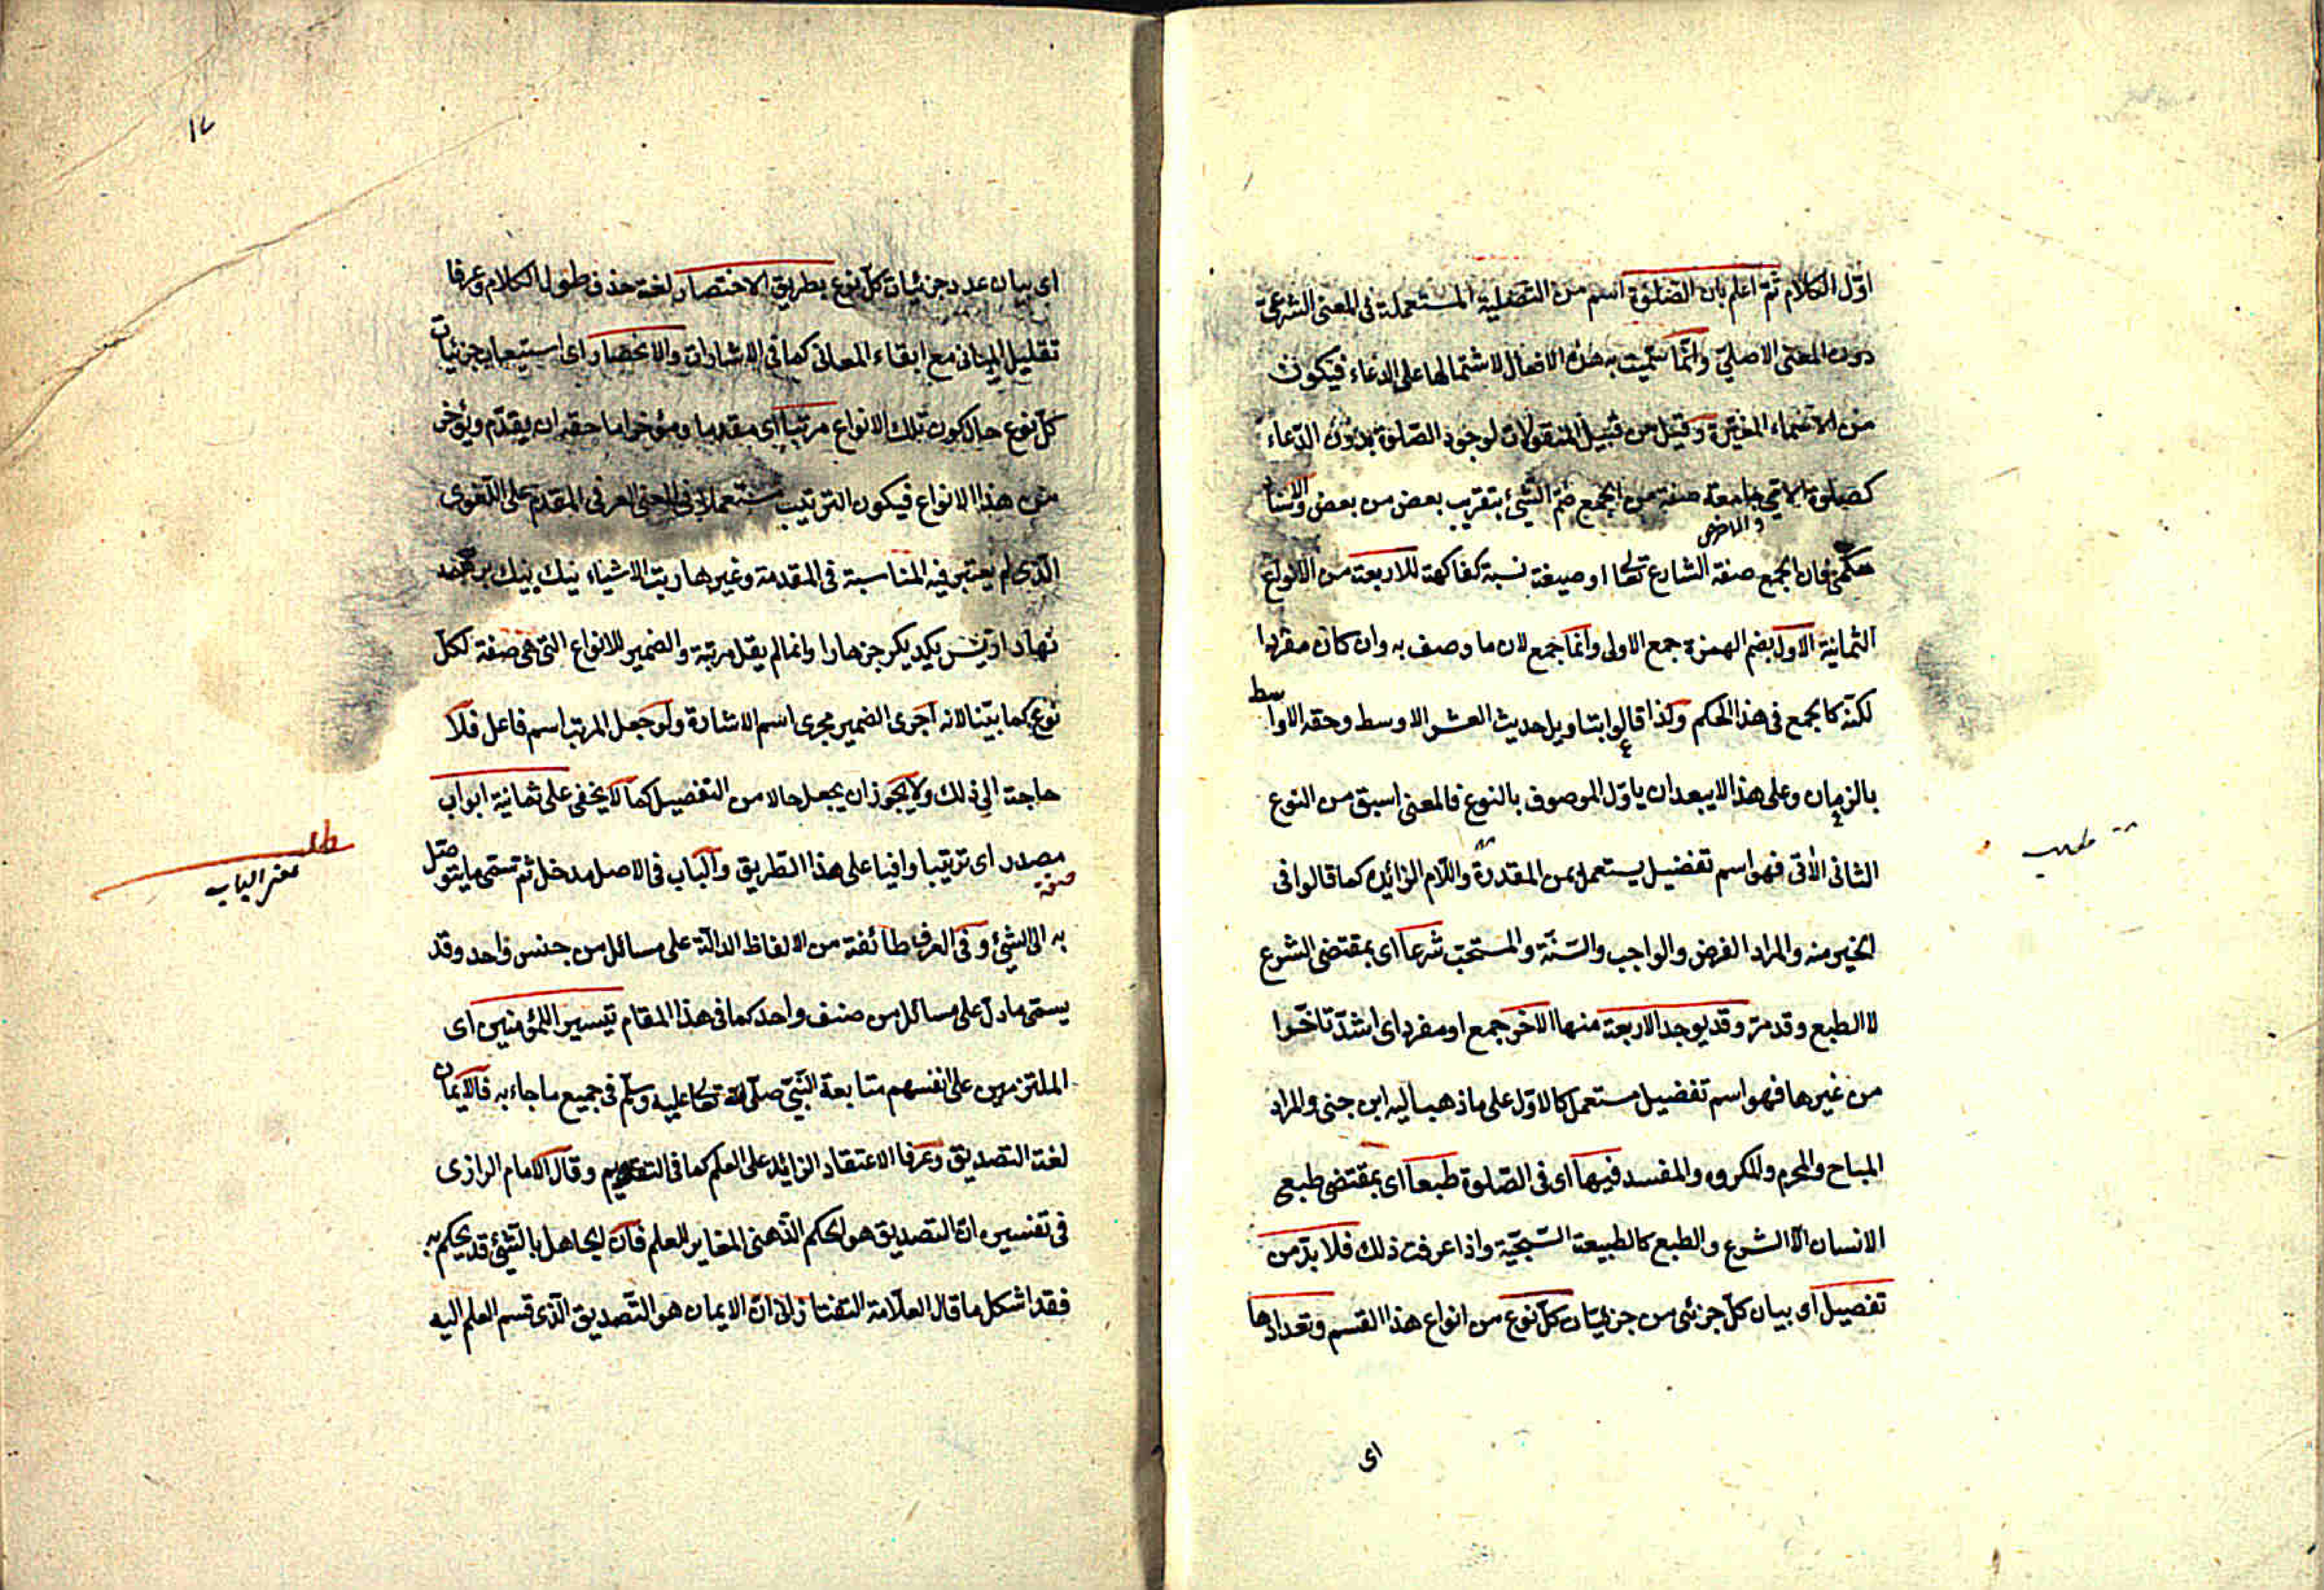 اوّل الكلام ثمّ اعلم بان الصّلوة اسم من التصلية المستعملة فى المعنى الشرعىّ
دون المعنى الاصلىّ وانّما سمّيت به هذه الافعال لاشتمالها على الدعاء فيكون
من الاسماء المغيّرة وقيل من قبيل المنقولات لوجود الصّلوة بدون الدّعاء
كصلوة الامّى جامعة صفة من الجمع ضمّ الشّئ بتقريب بعض من بعض والاسناد
فان الجمع صفة الشارع تعا او صيغة نسبة كفاكهة للاربعة من الانواع
الثمانية الاول بضم الهمزة جمع الاولى وانّما جمع لان ما وصف به وان كان مفردا
لكنّه كالجمع فى هذا الحكم وكذا قالوا بتاويل حديث العشر الاوسط وحقه الاواسط
بالزمان وعلى هذا لا يبعد ان ياوّل الموصوف بالنوع فالمعنى اسبق من النوع
الثانى الآتى فهو اسم تفضيل يستعمل بمن المقدرة واللّام الزائدة كما قالوا فى
الخير منه والمراد الفرض والواجب والسّنّة والمستحبّ شرعا اى بمقتضى الشرع
لا الطبع وقد مرّ وقد يوجد الاربعة منها الاخر جمع او مفرد اى اشدّ تاخّرا
من غيرها فهو اسم تفضيل مستعمل كالاوّل على ما ذهب اليه ابن جنى والمراد
المباح والمحرم والمكروه والمفسد فيها اى فى الصّلوة طبعا اى بمقتضى طبعى
الانسان لا الشرع والطبع كالطبيعة السّجيّة واذا عرفت ذلك فلا بدّ من
تفصيل اى بيان كلّ جزئى من جزئيّات كلّ نوع من انواع هذا القسم وتعدادها
اى
اى بيان عدد جزئيات كلّ نوع بطريق الاختصار لغة حذف طول الكلام وعرفا
تقليل المبانى مع ابقاء المعانى كما فى الاشارات والانحصار اى استيعاب جزئيات
كلّ نوع حال كون تلك الانواع مرتّبا اى مقدما ومؤخرا ما حقه ان يقدّم ويؤخر
من هذا الانواع فيكون الترتيب مستعملا فى المعنى العرفى المقدم على اللّغوى
الّذى لم يعتبر فيه المناسبة فى المقدمة وغيرها رتب الاشياء نيك بنيك
وانما لم يقل مرتبة والضمير للانواع التى هى صفة لكلّ
نوع كما بيّنا لانه اجرى الضمير مجرى اسم الاشارة ولو جعل المرتب اسم فاعل فلا
حاجة الى ذلك ولا يجوز ان يجعل حالا من التفصيل كما لا يخفى على ثمانية ابواب
مصدر اى ترتيبا وافيا على هذا الطريق والباب فى الاصل مدخل ثم سمّى ما يتوصّل
به الى الشئ وفى العرف طائفة من الالفاظ الدالّة على مسائل من جنس واحد وقد
يسمّى ما دلّ على مسائل من صنف واحد كما فى هذا المقام تيسيرا للمؤمنين اى
الملتزمين على انفسهم متابعة النّبىّ صلّى الله تعا عليه وسلّم فى جميع ما جاء به فالايمان
لغة التصديق وعرفا الاعتقاد الزائد على العلم كما فى التقويم وقال الامام الرازى
فى تفسيره انّ التصديق هو الحكم الذّهنى المغاير للعلم فان الجاهل بالشّئ قد يحكم به
فقد اشكل ما قال العلّامة التفتازانى انّ الايمان هو التّصديق الّذى قسم العلم اليه
معنى الباب